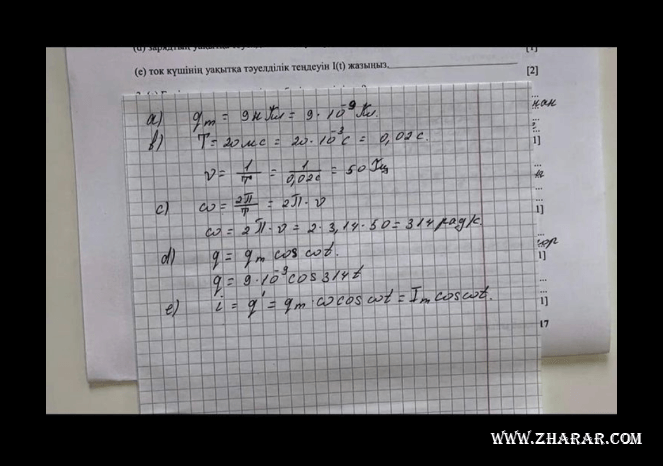 (d) зарядтың уақытқа
[1]
(e) ток күшінің уақытқа тәуелділік теңдеуін I(t) жазыңыз.
[2]
a) qm = 9нКл = 9·10⁻⁹Кл.
b) T = 20мс = 20·10⁻³с = 0,02с.
ν = 1/T = 1/0,02с = 50Гц
c) ω = 2π/T = 2π·ν
ω = 2π·ν = 2·3,14·50 = 314 рад/с.
d) q = qm cos ωt.
q = 9·10⁻⁹cos 314t
e) i = q' = qm·ω cos ωt = Im cos ωt.
1]
1]
1]
1]
17
WWW.ZHARAR.COM